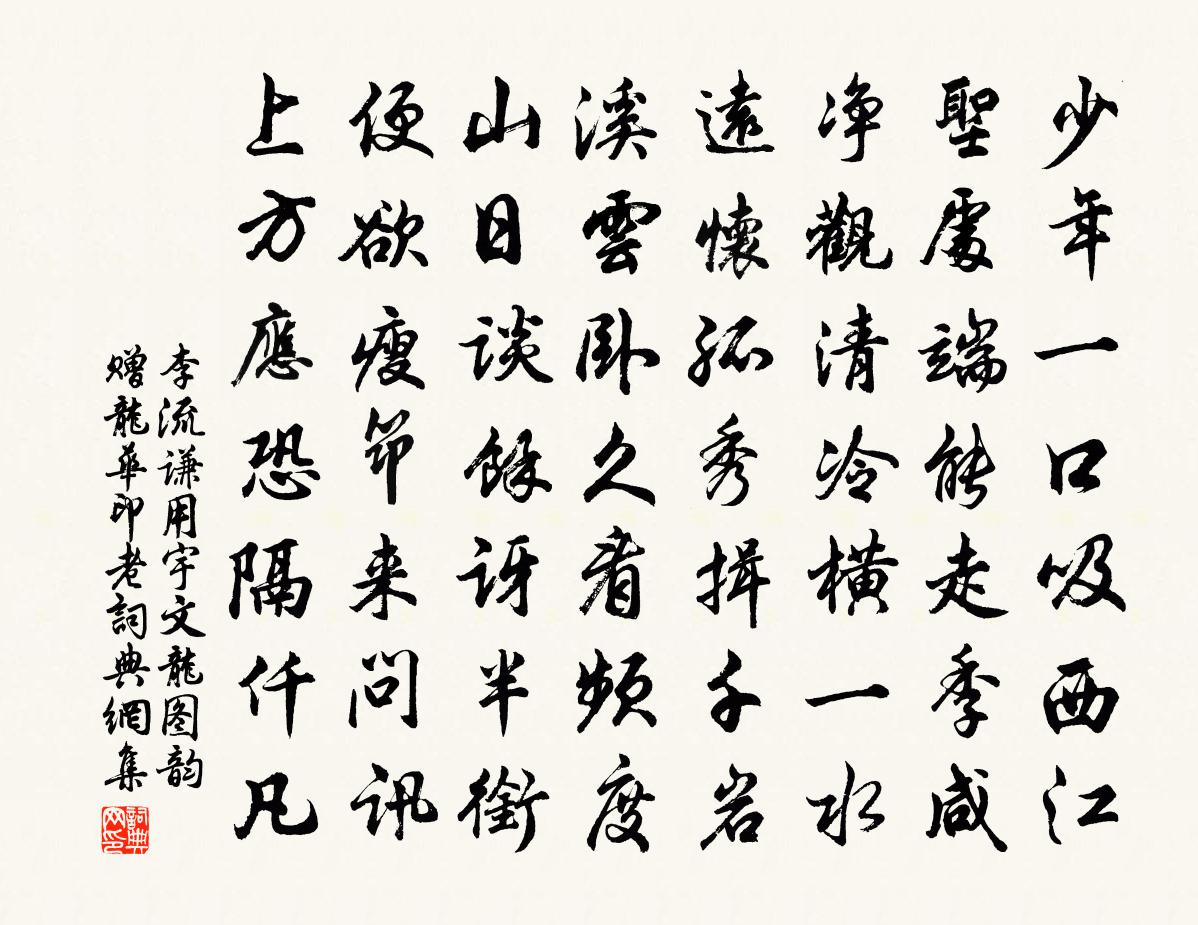 少年一口吸西江
聖處端能走季咸
净觀清冷橫一水
遠懷孤秀揖千岩
溪雲卧久看頻度
山日談餘訝半銜
便欲瘦笻来問訊
上方應恐隔仟凡
李流谦用宇文龍图韵
赠龍華印老詞典網集
詞典
网印